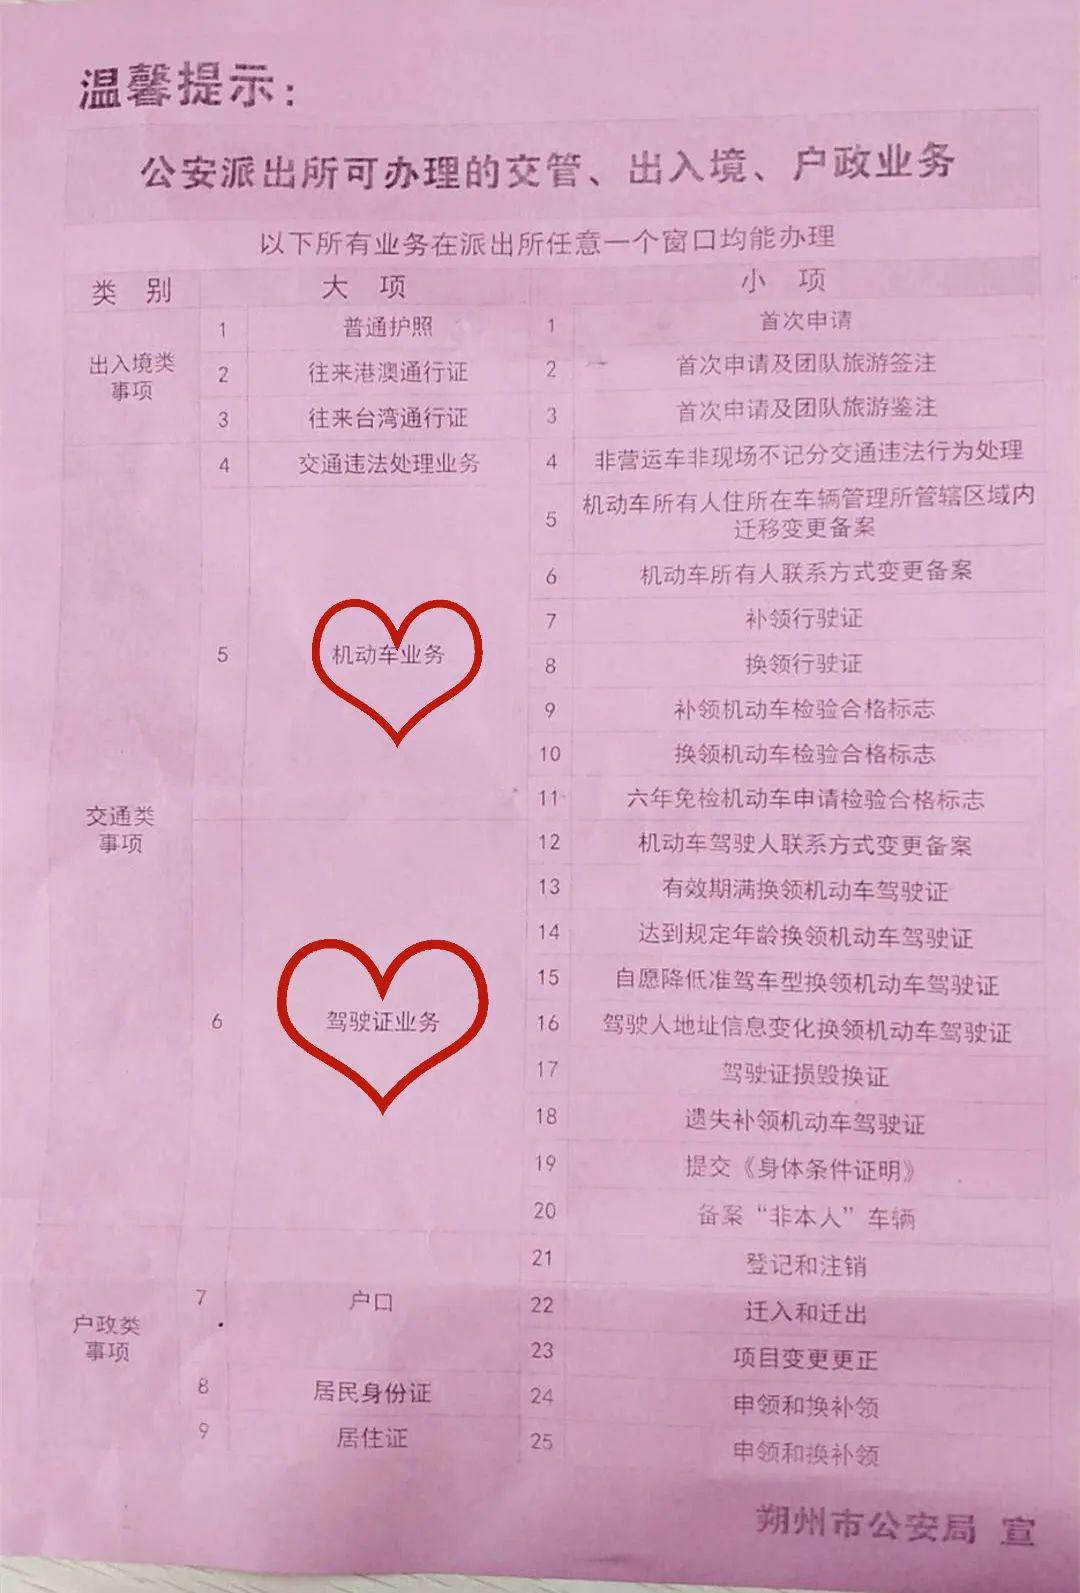 温馨提示：
公安派出所可办理的交管、出入境、户政业务
以下所有业务在派出所任意一个窗口均能办理
类 别 大 项 小 项
出入境类
事项
1 普通护照 1 首次申请
2 往来港澳通行证 2 首次申请及团队旅游签注
3 往来台湾通行证 3 首次申请及团队旅游鉴注
交通类
事项
4 交通违法处理业务 4 非营运车非现场不记分交通违法行为处理
5 机动车业务
5 机动车所有人住所在车辆管理所管辖区域内
迁移变更备案
6 机动车所有人联系方式变更备案
7 补领行驶证
8 换领行驶证
9 补领机动车检验合格标志
10 换领机动车检验合格标志
11 六年免检机动车申请检验合格标志
6 驾驶证业务
12 机动车驾驶人联系方式变更备案
13 有效期满换领机动车驾驶证
14 达到规定年龄换领机动车驾驶证
15 自愿降低准驾车型换领机动车驾驶证
16 驾驶人地址信息变化换领机动车驾驶证
17 驾驶证损毁换证
18 遗失补领机动车驾驶证
19 提交《身体条件证明》
20 备案“非本人”车辆
户政类
事项
7 户口
21 登记和注销
22 迁入和迁出
23 项目变更更正
8 居民身份证 24 申领和换补领
9 居住证 25 申领和换补领
朔州市公安局 宣